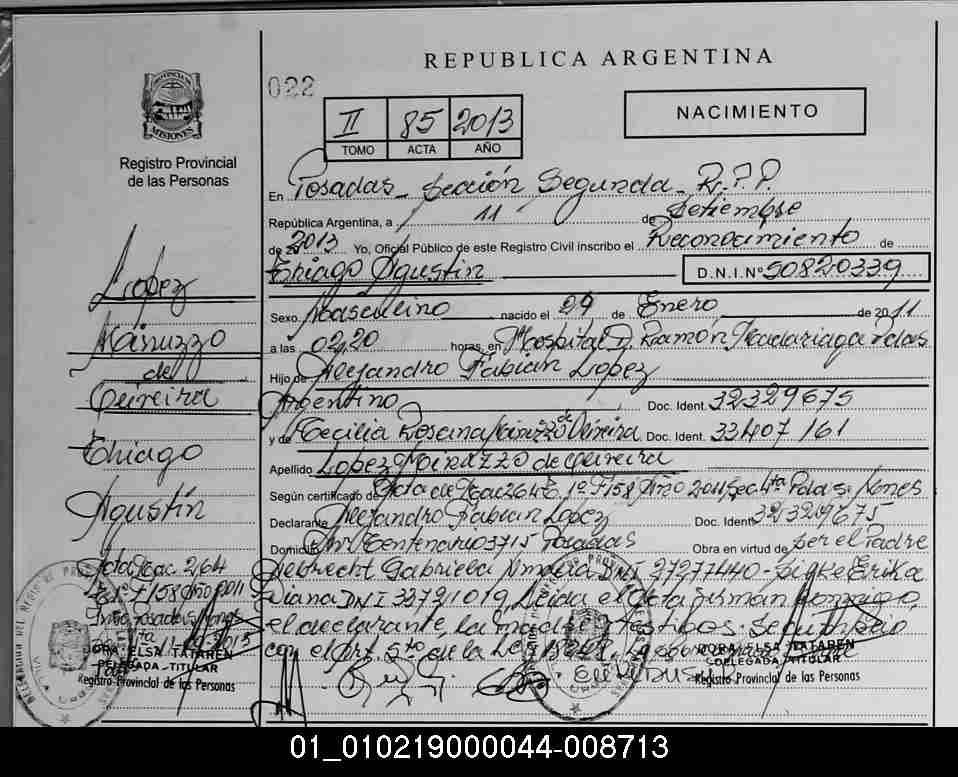 REPUBLICA ARGENTINA
022
PROVINCIA DE
MISIONES
Registro Provincial
de las Personas
II 85 2013
TOMO ACTA AÑO
NACIMIENTO
En Posadas - Sección Segunda - R.P.P.
República Argentina, a 11 de Setiembre
de 2013 Yo, Oficial Público de este Registro Civil inscribo el Reconocimiento de
Thiago Agustín D.N.I.Nº 50820339
Sexo Masculino nacido el 29 de Enero de 2011
a las 02,20 horas, en Hospital D. Ramón Madariaga Pdas
Hijo de Alejandro Fabian Lopez
Argentino Doc. Ident. 32329675
y de Cecilia Rosana de Doc. Ident. 33407161
Apellido Lopez de
Según certificado de Acta de Nac 264 Tº 1º Fº 158 Año 2011 Sec 4ta Pdas. Mnes
Declarante Alejandro Fabian Lopez Doc. Ident 32329675
Domicilio Centenario 3715 Posadas Obra en virtud de per el Padre
Gabriela DNI 27277440 - Erika
Diana DNI 33721019, Leida el Acta firman conmigo,
el declarante, la madre testigos.
con el Art. 5to de la
Lopez
Mainuzzo
de
Thiago
Agustín
Acta Nac. 264
Fº 158 Año 2011
DORA ELSA TATAREN
DELEGADA TITULAR
Registro Provincial de las Personas
DORA ELSA TATAREN
DELEGADA TITULAR
Registro Provincial de las Personas
01_010219000044-008713